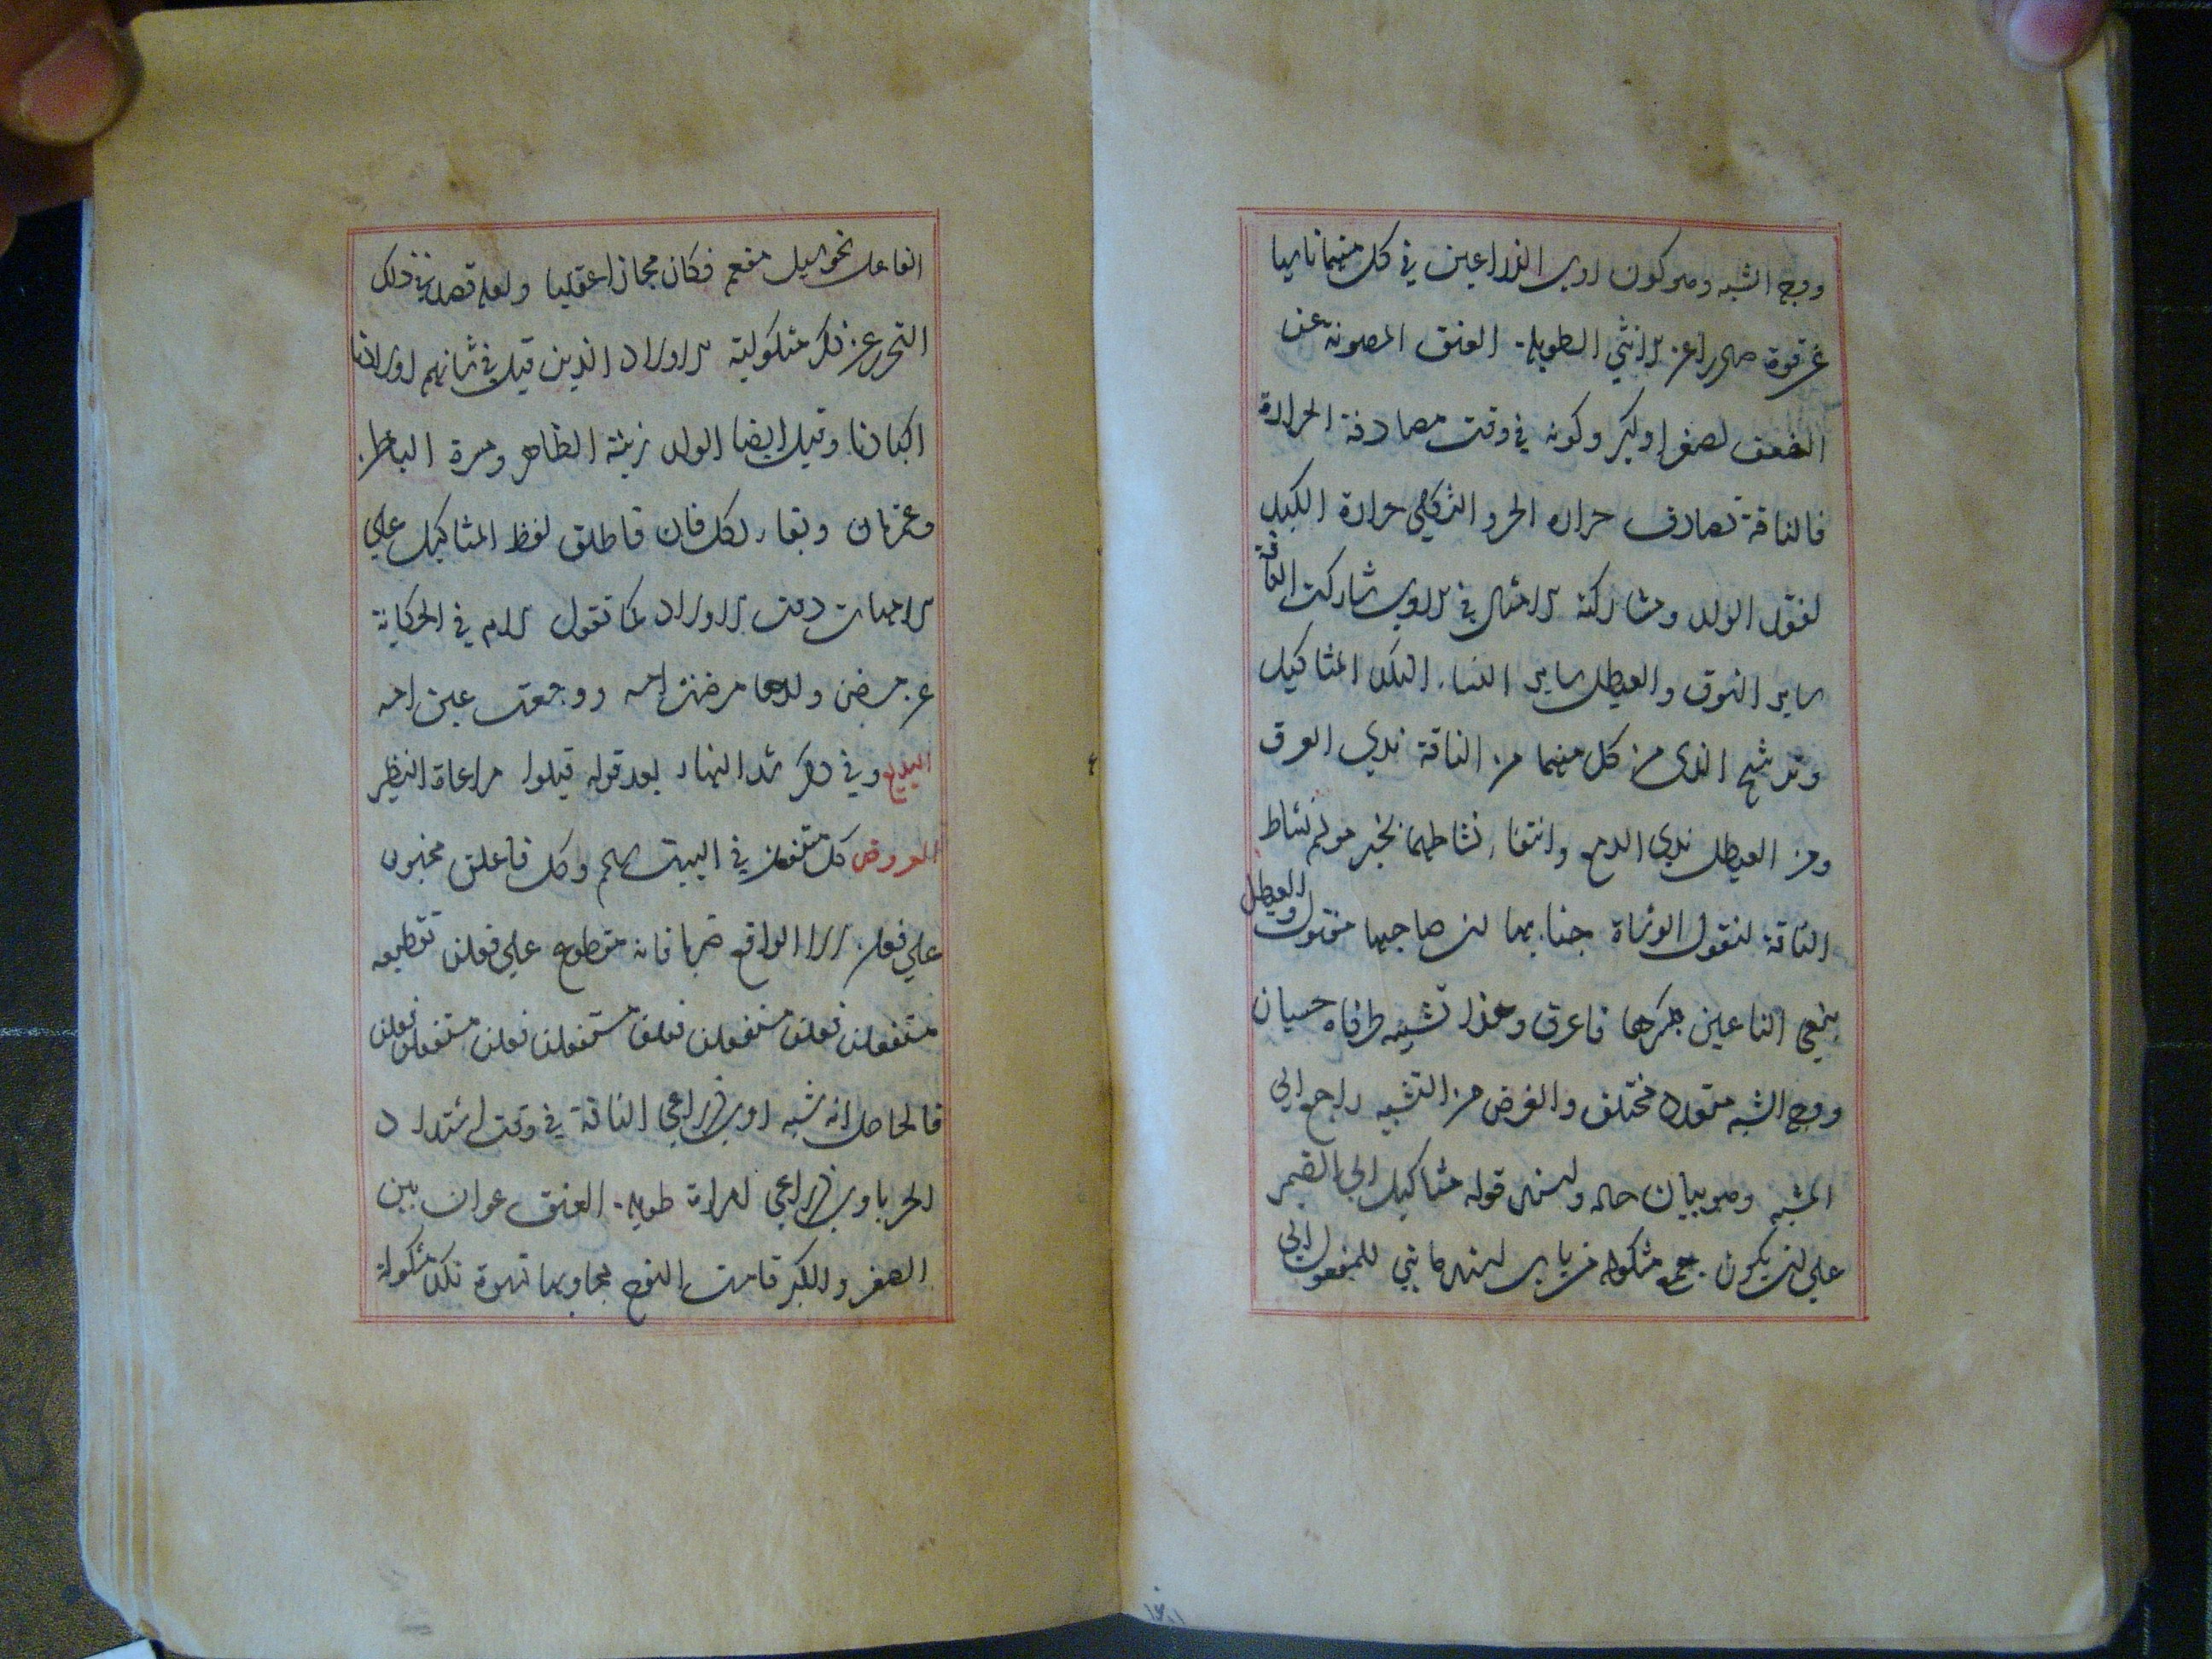 ووجه الشبه وهو كون اوب الذراعين في كل منهما ناشيا
عن قوة صادرا عن الانثي الطويلة العنق المصونة عن
الضعف لصغر او لكبر وكونه في وقت مصادفة الحرارة
فالناقة تصادف حرارة الحر والثكلي حرارة الكبد
لفقد الولد ومشاركة الامثال في الاوب شاركت الناقة
ساير النوق والعيطل ساير النساء النكد المثاكيل
وترشح الندي من كل منهما من الناقة ندي العرق
ومن العيطل ندي الدمع وانتفاء نشاطهما بخبر مولم نشاط
الناقة لنقول الوشاة جنابيها ان صاحبها مقتول والعيطل
بنعي الناعين بكرها فاعرق وهذا تشبيه طرفاه حسيان
ووجه الشبه متعدد مختلف والغرض من التشبيه راجع الي
المشبه وهو بيان حاله واسند قوله مثاكيل الي الضمير
علي ان يكون جمع مثكولة من باب اسناد ما بني للمفعول الي
الفاعل نحو سيل مفعم فكان مجازا عقليا ولعله قصد في ذلك
التحرز عن ذكر مثكولية الاولاد الذين قيل في شانهم اولادنا
اكبادنا وقيل ايضا الولد زينة الظاهر ومسرة الباطن
وبقاء لكل فان فاطلق لفظ المثاكيل علي
الامهات دون الاولاد كما تقول الام في الحكاية
عن مرض ولدها مرضت امه ووجعت عين امه
البديع وفي ذكر شد النهار بعد قوله قيلوا مراعاة النظير
العروض كل مستفعلن في البيت سالم وكل فاعلن مخبون
علي فعلن الا الواقع ضربا فانه مقطوع علي فعلن تقطيعه
مستفعلن فعلن مستفعلن فعلن مستفعلن فعلن مستفعلن فعلن
فالحاصل انه شبه اوب ذراعي الناقة في وقت اشتداد
الحر باوب ذراعي امراة طويلة العنق عوان بين
الصغر والكبر قامت للنوح فجاوبها نسوة نكد مثكولة